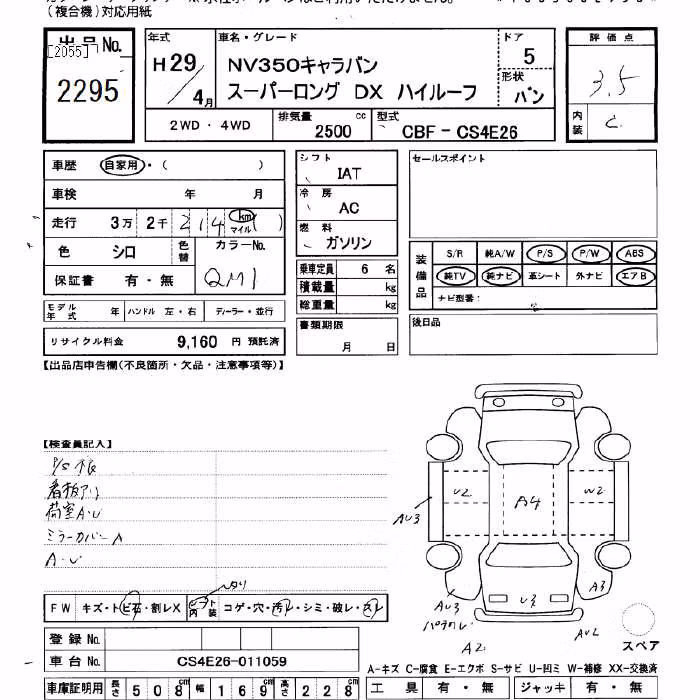 (複合機)対応用紙
出品No.
[2055]
2295
年式
H 29
/4月
車名・グレード
NV350キャラバン
スーパーロング DX ハイルーフ
ドア
5
形状
バン
評価点
3.5
内装
C
2WD・4WD
排気量
2500
cc
型式
CBF - CS4E26
車歴
自家用・( )
車検 年 月
走行 3万 2千 214 km マイル ( )
色 シロ
色替
カラーNo.
QM1
保証書 有・無
シフト
IAT
冷房
AC
燃料
ガソリン
乗車定員 6 名
積載量 kg
総重量 kg
書類期限
月 日
セールスポイント
装備品
S/R 純A/W P/S P/W ABS
純TV 純ナビ 革シート 外ナビ エアB
ナビ型番:
後日品
モデル年式 年 ハンドル 左・右 ディーラー・並行
リサイクル料金 9,160 円 預託済
【出品店申告欄(不良箇所・欠品・注意事項等)】
【検査員記入】
P/S不良
看板アリ
荷室A・U
ミラーカバーA
A・U
U2
A4
W2
AU3
AU3
U3
A3
A2
AU2
スペア
FW キズ・トビ石・割レX
内装 コゲ・穴・汚レ・シミ・破レ・スレ
登録No.
車台No. CS4E26-011059
車庫証明用 長さ 508cm 幅 169cm 高さ 228cm
A-キズ C-腐食 E-エクボ S-サビ U-凹ミ W-補修 XX-交換済
工具 有・無 ジャッキ 有・無